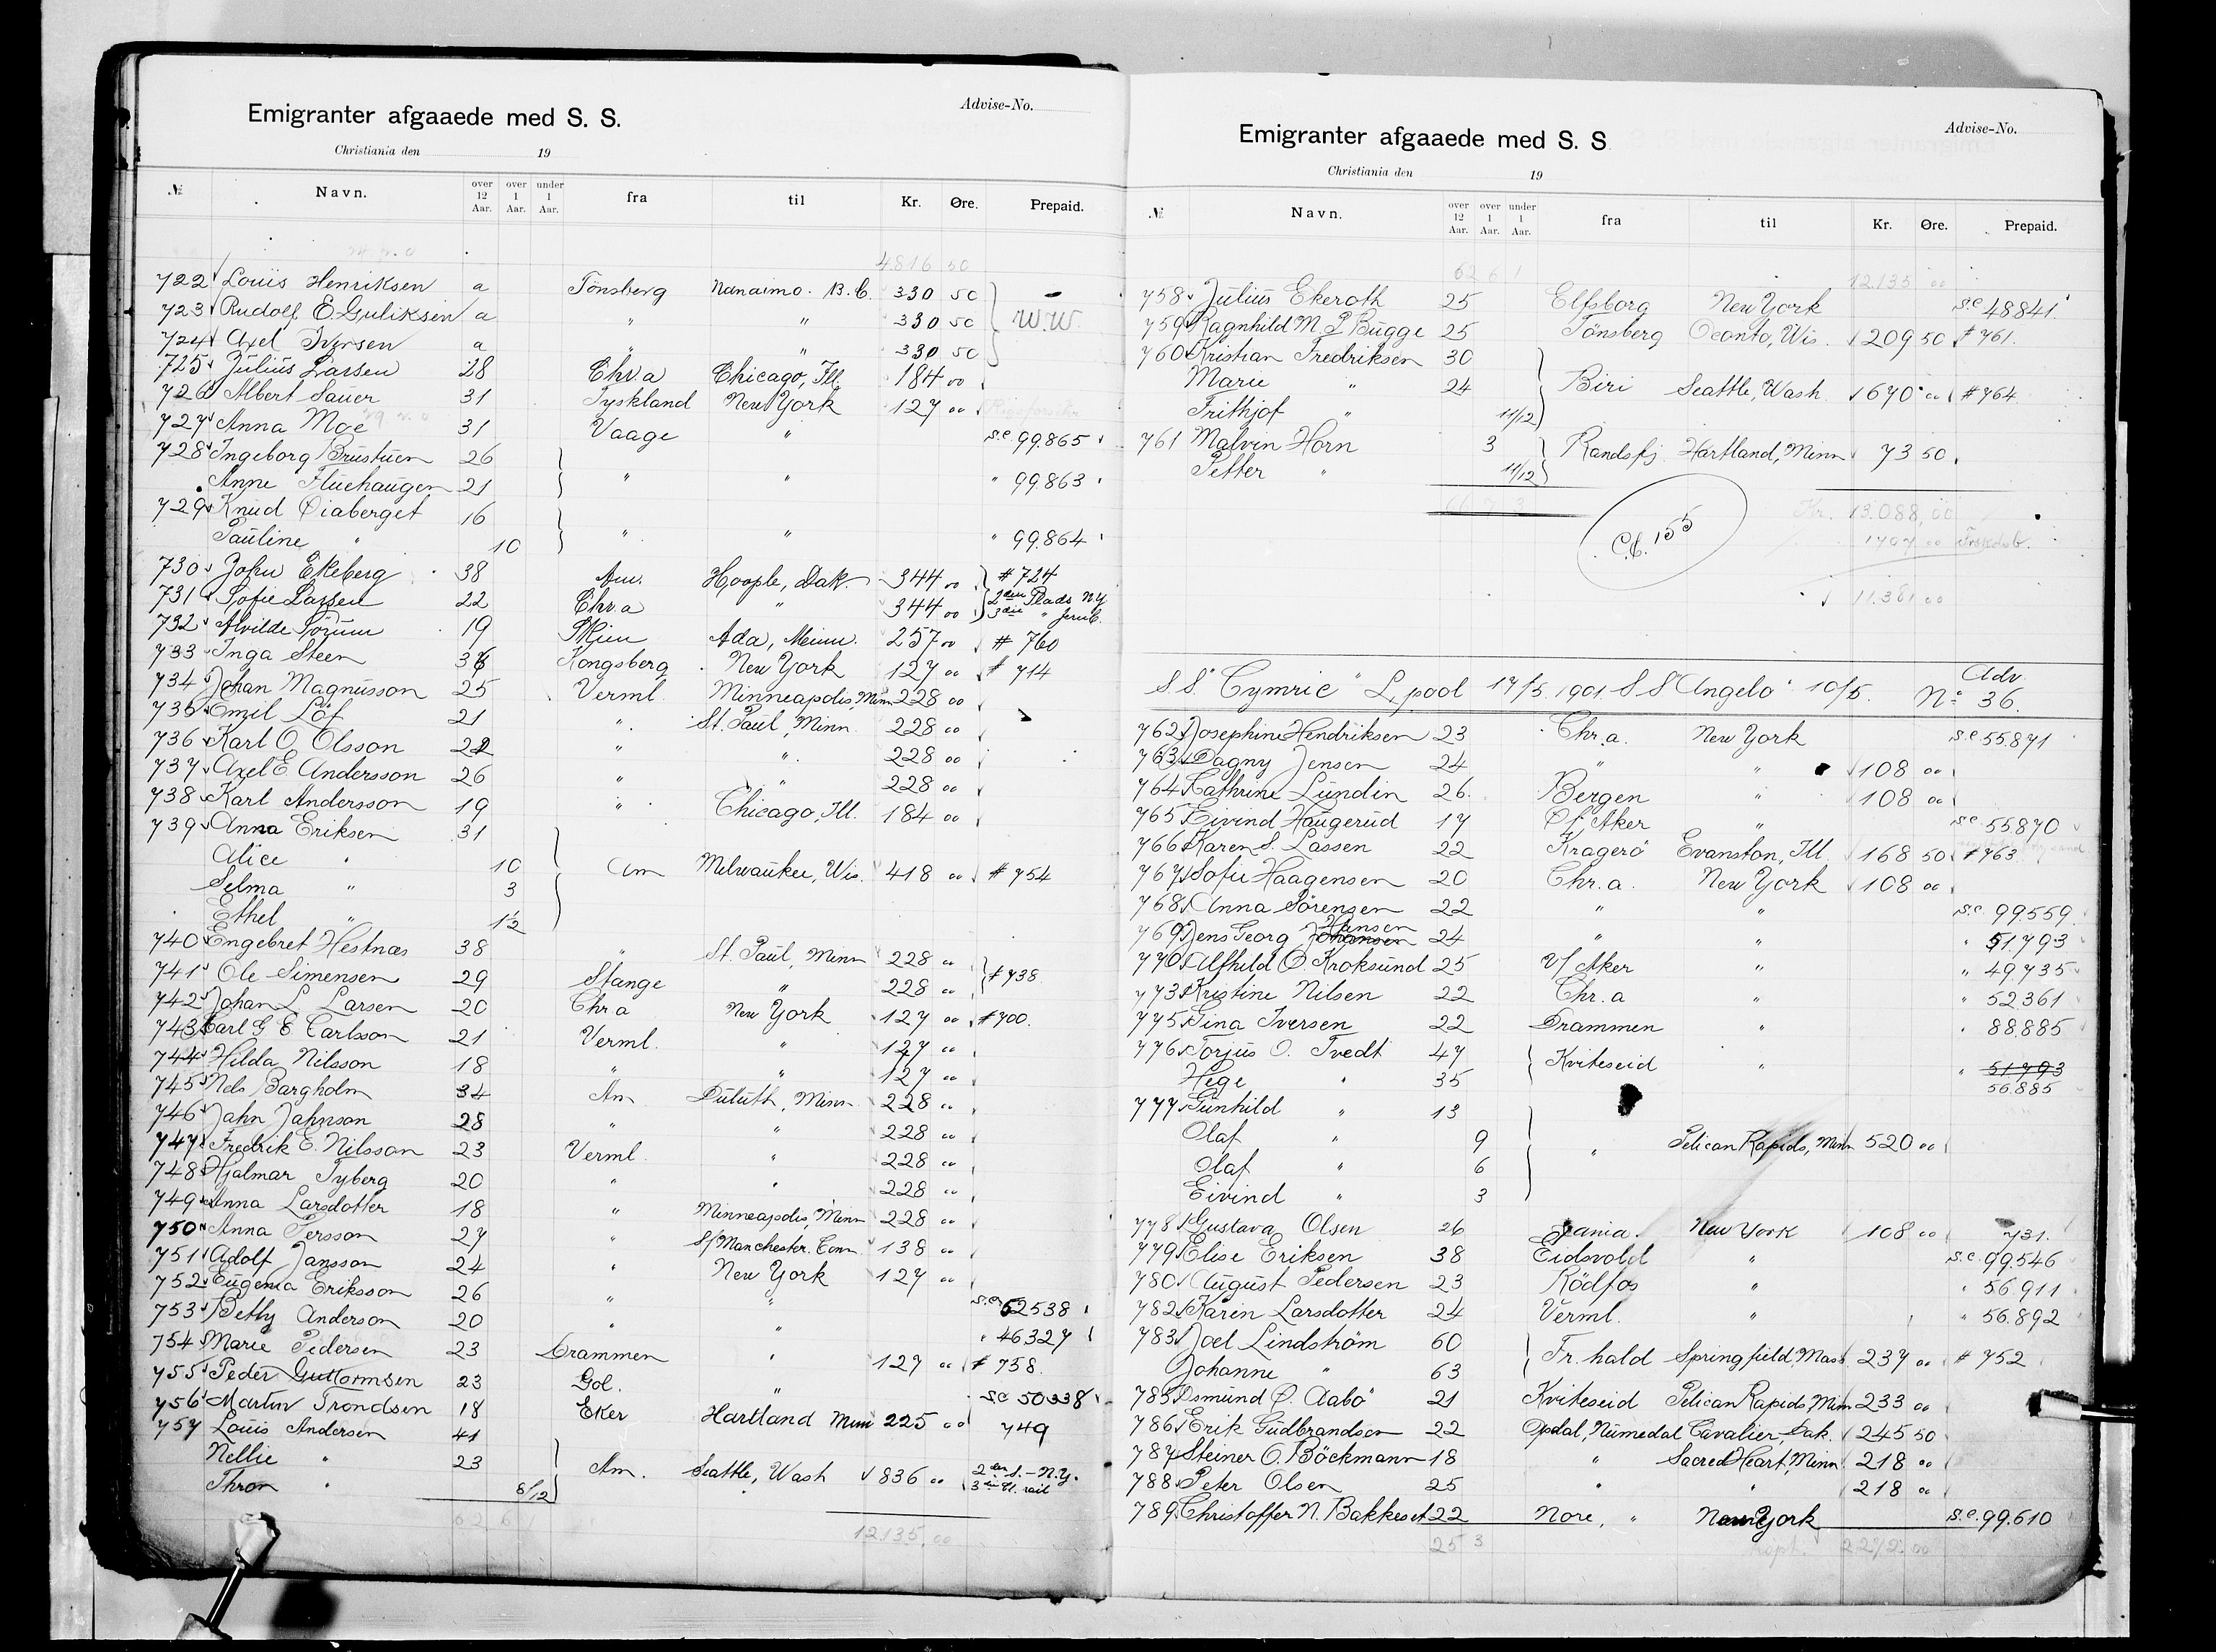 Advise-No.
Emigranter afgaaede med S. S.
Christiania den 19
№ Navn. over 12 Aar. over 1 Aar. under 1 Aar. fra til Kr. Øre. Prepaid.
4816 50
722 Louis Henriksen a Tönsberg Nanaimo. B.C. 330 50
723 Rudolf E. Guliksen a " " 330 50 W.W.
724 Axel Iversen a " " 330 50
725 Julius Larsen 28 Chr.a Chicago, Ill. 184 00
726 Albert Sauer 31 Tyskland New York 127 00
727 Anna Moe 31 Vaage " s.c. 99.865
728 Ingeborg Brustuen 26
Anne Fluehaugen 21 " " " 99.863
729 Knud Öiaberget 16
Pauline " 10 " " " 99.864
730 John Ekeberg 38 Am. Hoople, Dak. 344 00 # 724
731 Sofie Larsen 22 Chr.a " 344 00 2den Plads N.Y. 3die " Jernb.
732 Alvilde Sörum 19 Skien Ada, Minn. 257 00 # 760
733 Inga Steen 36 Kongsberg New York 127 00 # 714
734 Johan Magnusson 25 Verml. Minneapolis, Minn 228 00
735 Emil Löf 21 " St. Paul, Minn. 228 00
736 Karl O. Olsson 22 " " 228 00
737 Axel E. Andersson 26 " " 228 00
738 Karl Andersson 19 " Chicago, Ill. 184 00
739 Anna Eriksen 31
Alice " 10 Am Milwaukee, Wis. 418 00 # 754
Selma " 3
Ethel " 1½
740 Engebret Hestnæs 38 " St. Paul, Minn 228 00
741 Ole Simensen 29 Stange " 228 00 # 738
742 Johan L. Larsen 20 Chr.a New York 127 00 # 700.
743 Carl G E Carlsson 21 Verml. " 127 00
744 Hilda Nilsson 18 " " 127 00
745 Nels Bargholm 34 Am Duluth, Minn. 228 00
746 Jahn Jahnson 28 " " 228 00
747 Fredrik E. Nilsson 23 Verml. " 228 00
748 Hjalmar Tyberg 20 " " 228 00
749 Anna Larsdotter 18 " Minneapolis, Minn 228 00
750 Anna Persson 27 " S/Manchester. Conn 138 00
751 Adolf Jansson 24 " New York 127 00
752 Eugenia Eriksson 26 " " s.c. 62538
753 Betty Anderson 20 " " " 46327
754 Marie Pedersen 23 Drammen " 127 00 # 758.
755 Peder Guttormsen 23 Gol. " s.c. 50338
756 Martin Trondsen 18 Eker Hartland Minn 225 00 749
757 Louis Andersen 41
Nellie " 23 Am. Seattle, Wash 836 00 2den S. - N.Y. 3die Kl. rail
Thron " 8/12
62 6 1 12135,00
Advise-No.
Emigranter afgaaede med S. S
Christiania den 19
№ Navn. over 12 Aar. over 1 Aar. under 1 Aar. fra til Kr. Øre. Prepaid.
62 6 1 12.135 00
758 Julius Ekeroth 25 Elfsborg New York s.c. 48841
759 Ragnhild M. P Bugge 25 Tönsberg Oconto, Wis. 209 50 # 761.
760 Kristian Fredriksen 30
Marie " 24 Biri Seattle, Wash. 670 00 # 764
Frithjof " 11/12
761 Malvin Horn 3 Randsfj. Hartland, Minn 73 50
Petter " 11/12
Kr. 13.088,00
C.C. 155
11.361 00
S.S. "Cymric" L,pool 17/5 1901 S.S "Angelo" 10/5. Adv. No 36.
762 Josephine Hendriksen 23 Chr.a. New York s.c. 55.871
763 Dagny Jensen 24 " " 108 00
764 Cathrine Lundin 26 Bergen " 108 00
765 Eivind Haugerud 17 Ö/ Aker " s.c. 55870
766 Karen S. Lassen 22 Kragerö Evanston, Ill. 168 50 # 763
767 Sofie Haagensen 20 Chr.a. New York 108 00
768 Anna Sörensen 22 " " s.c. 99559.
769 Jens Georg Johansen Hansen 24 " " " 51.793
770 Alfhild O. Kroksund 25 V/ Aker " " 49,735
773 Kristine Nilsen 22 Chr.a " " 52361
775 Gina Iversen 22 Drammen " " 88.885
776 Torjus O. Tvedt 47 Kviteseid " " 51793
Hege " 35 56.885
777 Gunhild " 13
Olaf " 9 " Pelican Rapids, Minn 520 00
Olaf " 6
Eivind " 3
778 Gustava Olsen 26 Xania. New York 108 00 731.
779 Elise Eriksen 38 Eidsvold " s.c. 99.546
780 August Pedersen 23 Rödfos " " 56 911
782 Karin Larsdotter 24 Verml. " " 56.892
783 Joel Lindström 60
Johanne " 63 Fr.hald Springfield Mass. 237 00 # 752
785 Osmund O. Aabö 21 Kviteseid Pelican Rapids, Minn 233 00
786 Erik Gudbrandsen 22 Opdal, Numedal Cavalier, Dak. 245 50
787 Steiner O. Böckmann 18 " Sacred Heart, Minn. 218 00
788 Peter Olsen 25 " " 218 00
789 Christoffer N. Bakkeset 22 Nore, " New York s.c. 99.610
25 3 2272 00